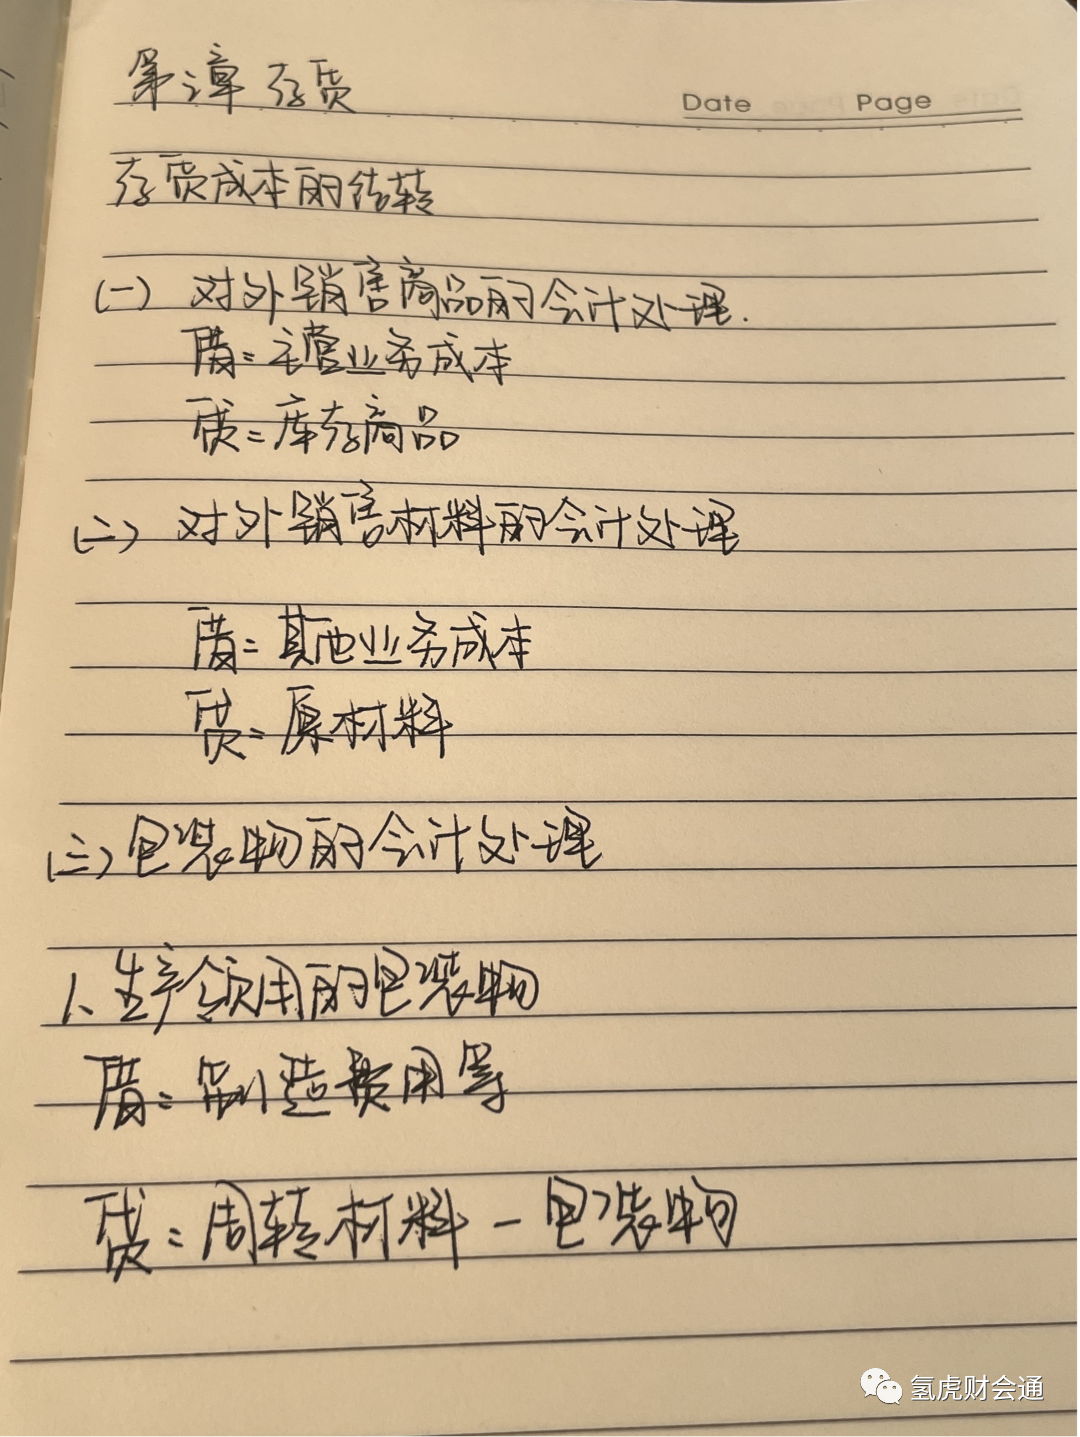 第二章 存货
Date Page
存货成本的结转
(一) 对外销售商品的会计处理.
借：主营业务成本
贷：库存商品
(二) 对外销售材料的会计处理
借：其他业务成本
贷：原材料
(三) 包装物的会计处理
1、生产领用的包装物
借：制造费用等
贷：周转材料－包装物
氢虎财会通